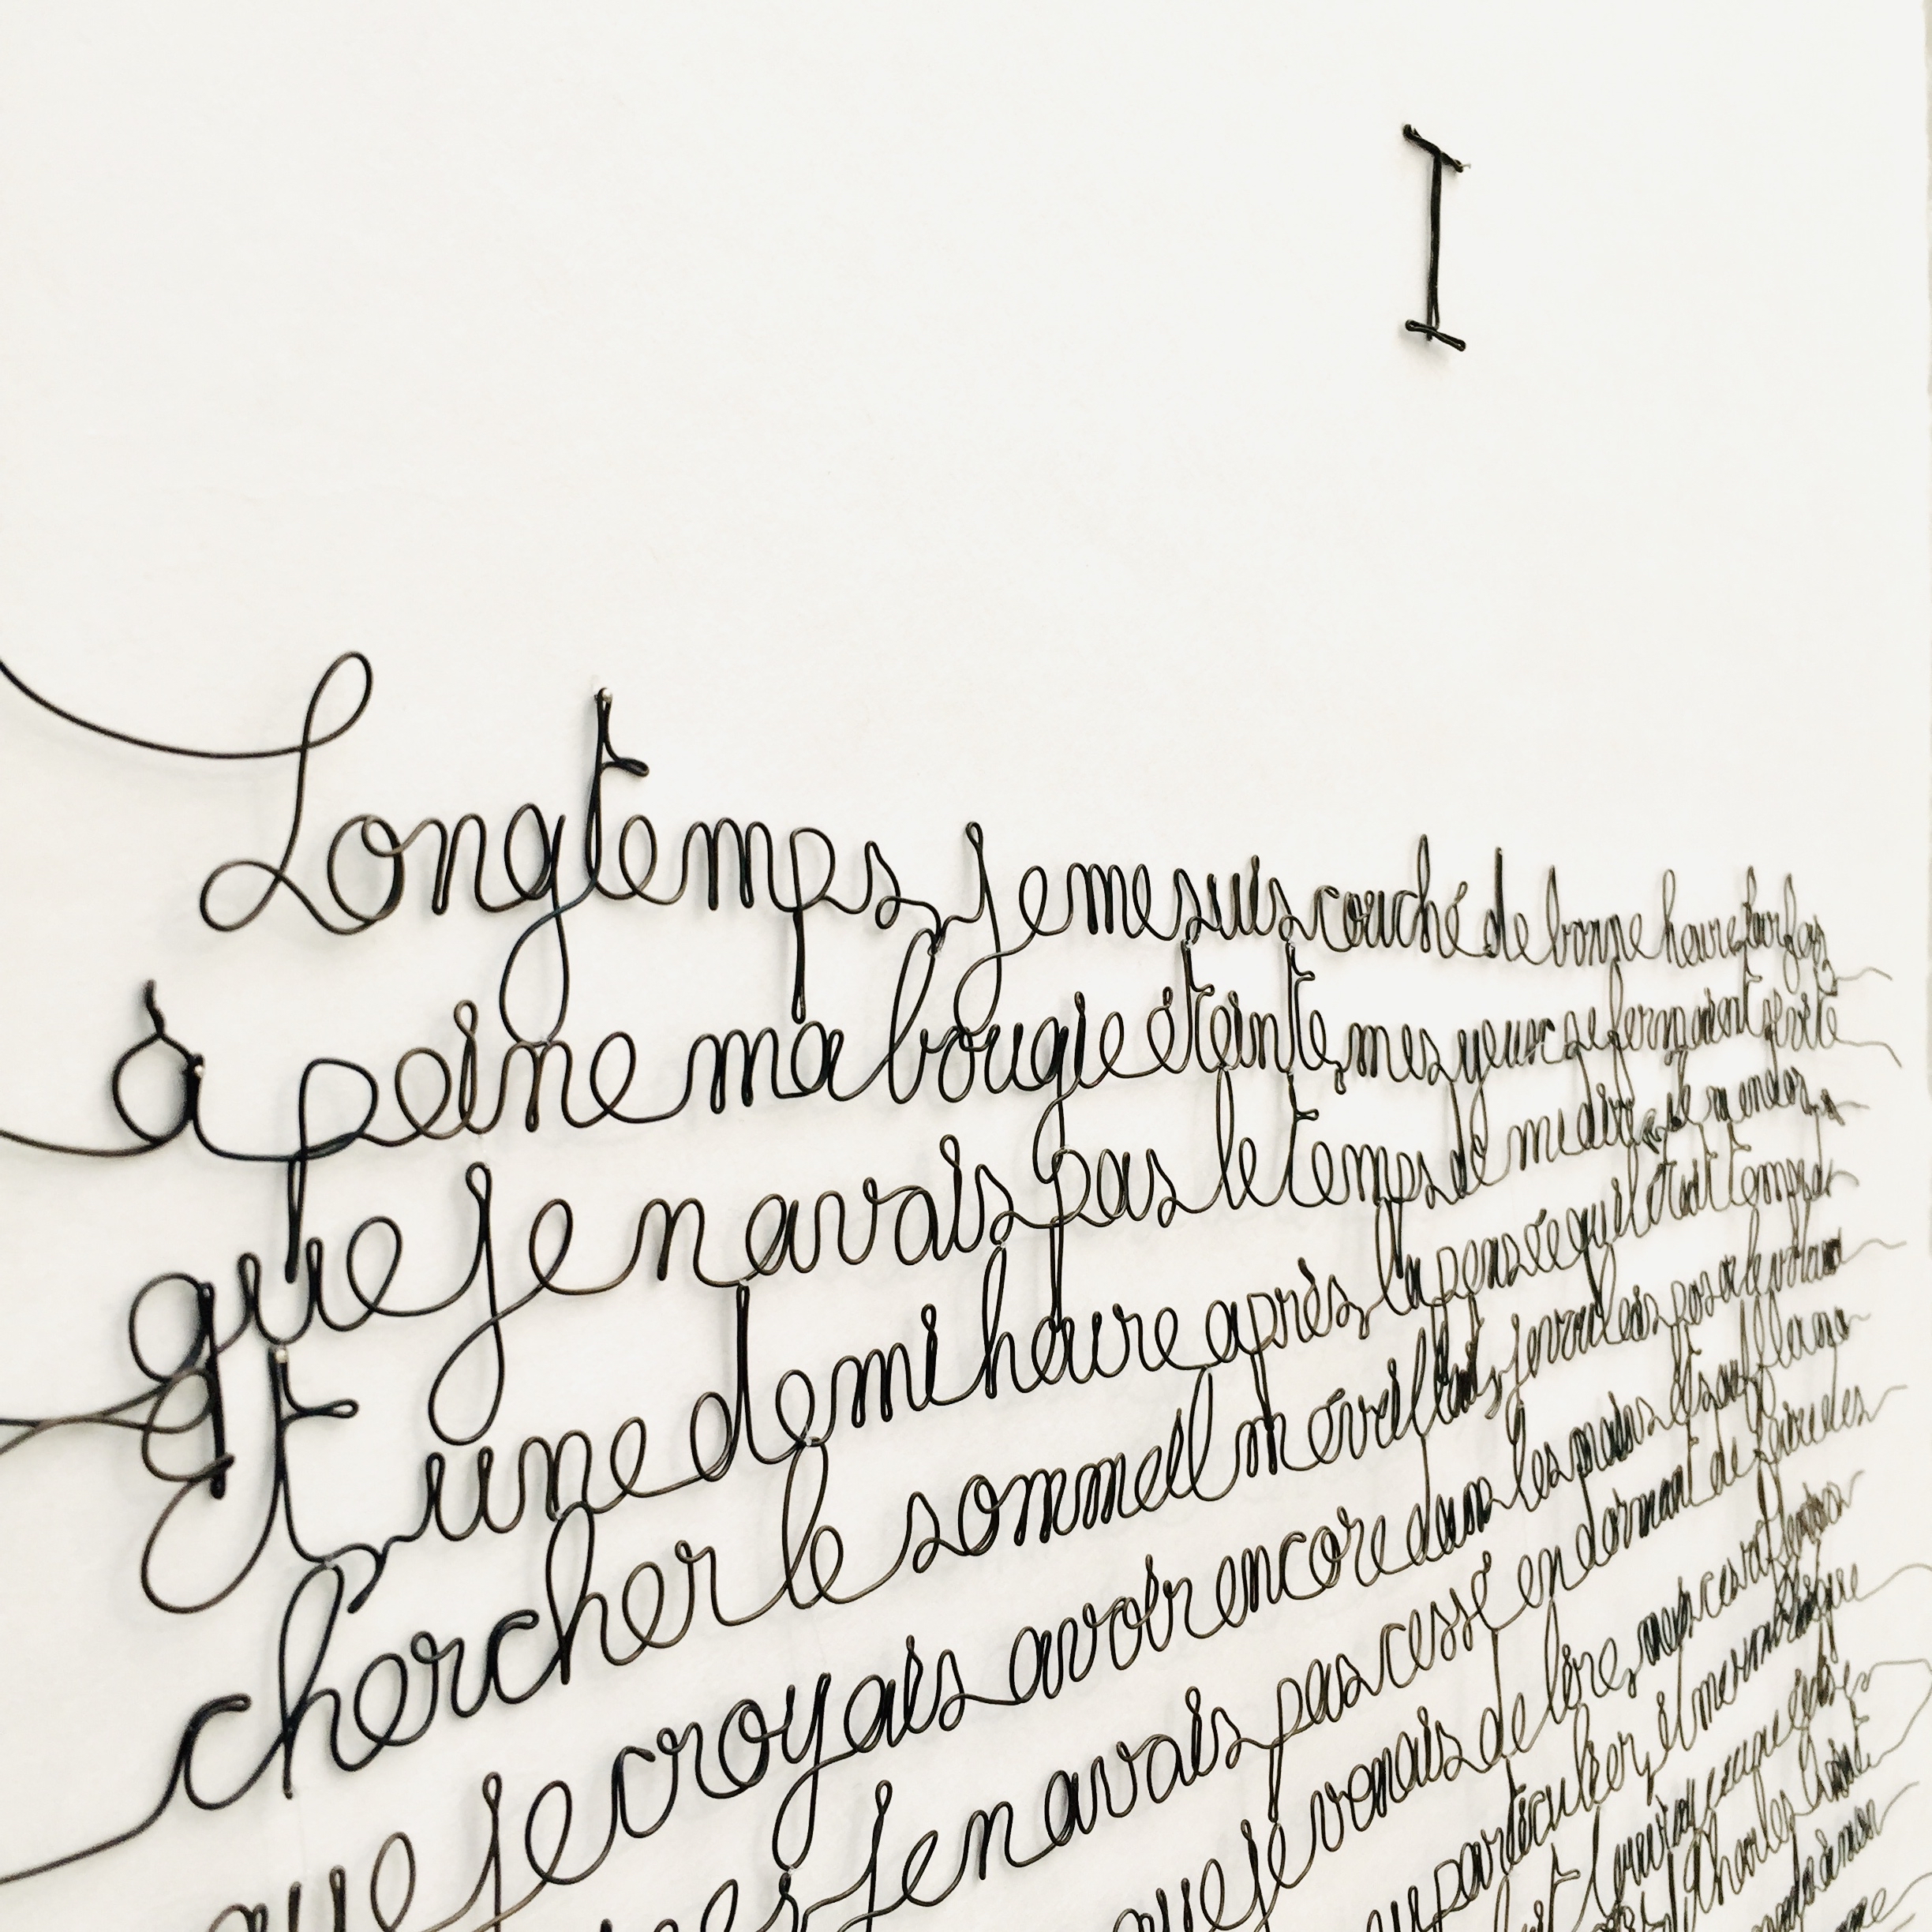 I
Longtemps, je me suis couché de bonne heure. Parfois,
à peine ma bougie éteinte, mes yeux se fermaient si vite
que je n avais pas le temps de me dire: Je m endors.
Et, une demi heure après, la pensée qu il était temps de
chercher le sommeil m éveillait, je voulais poser le volume
que je croyais avoir encore dans les mains et souffler ma
je n avais pas cessé en dormant de faire des
que je venais de lire, mais ces réflexions
particulier, il me semblait que
Charles Quint